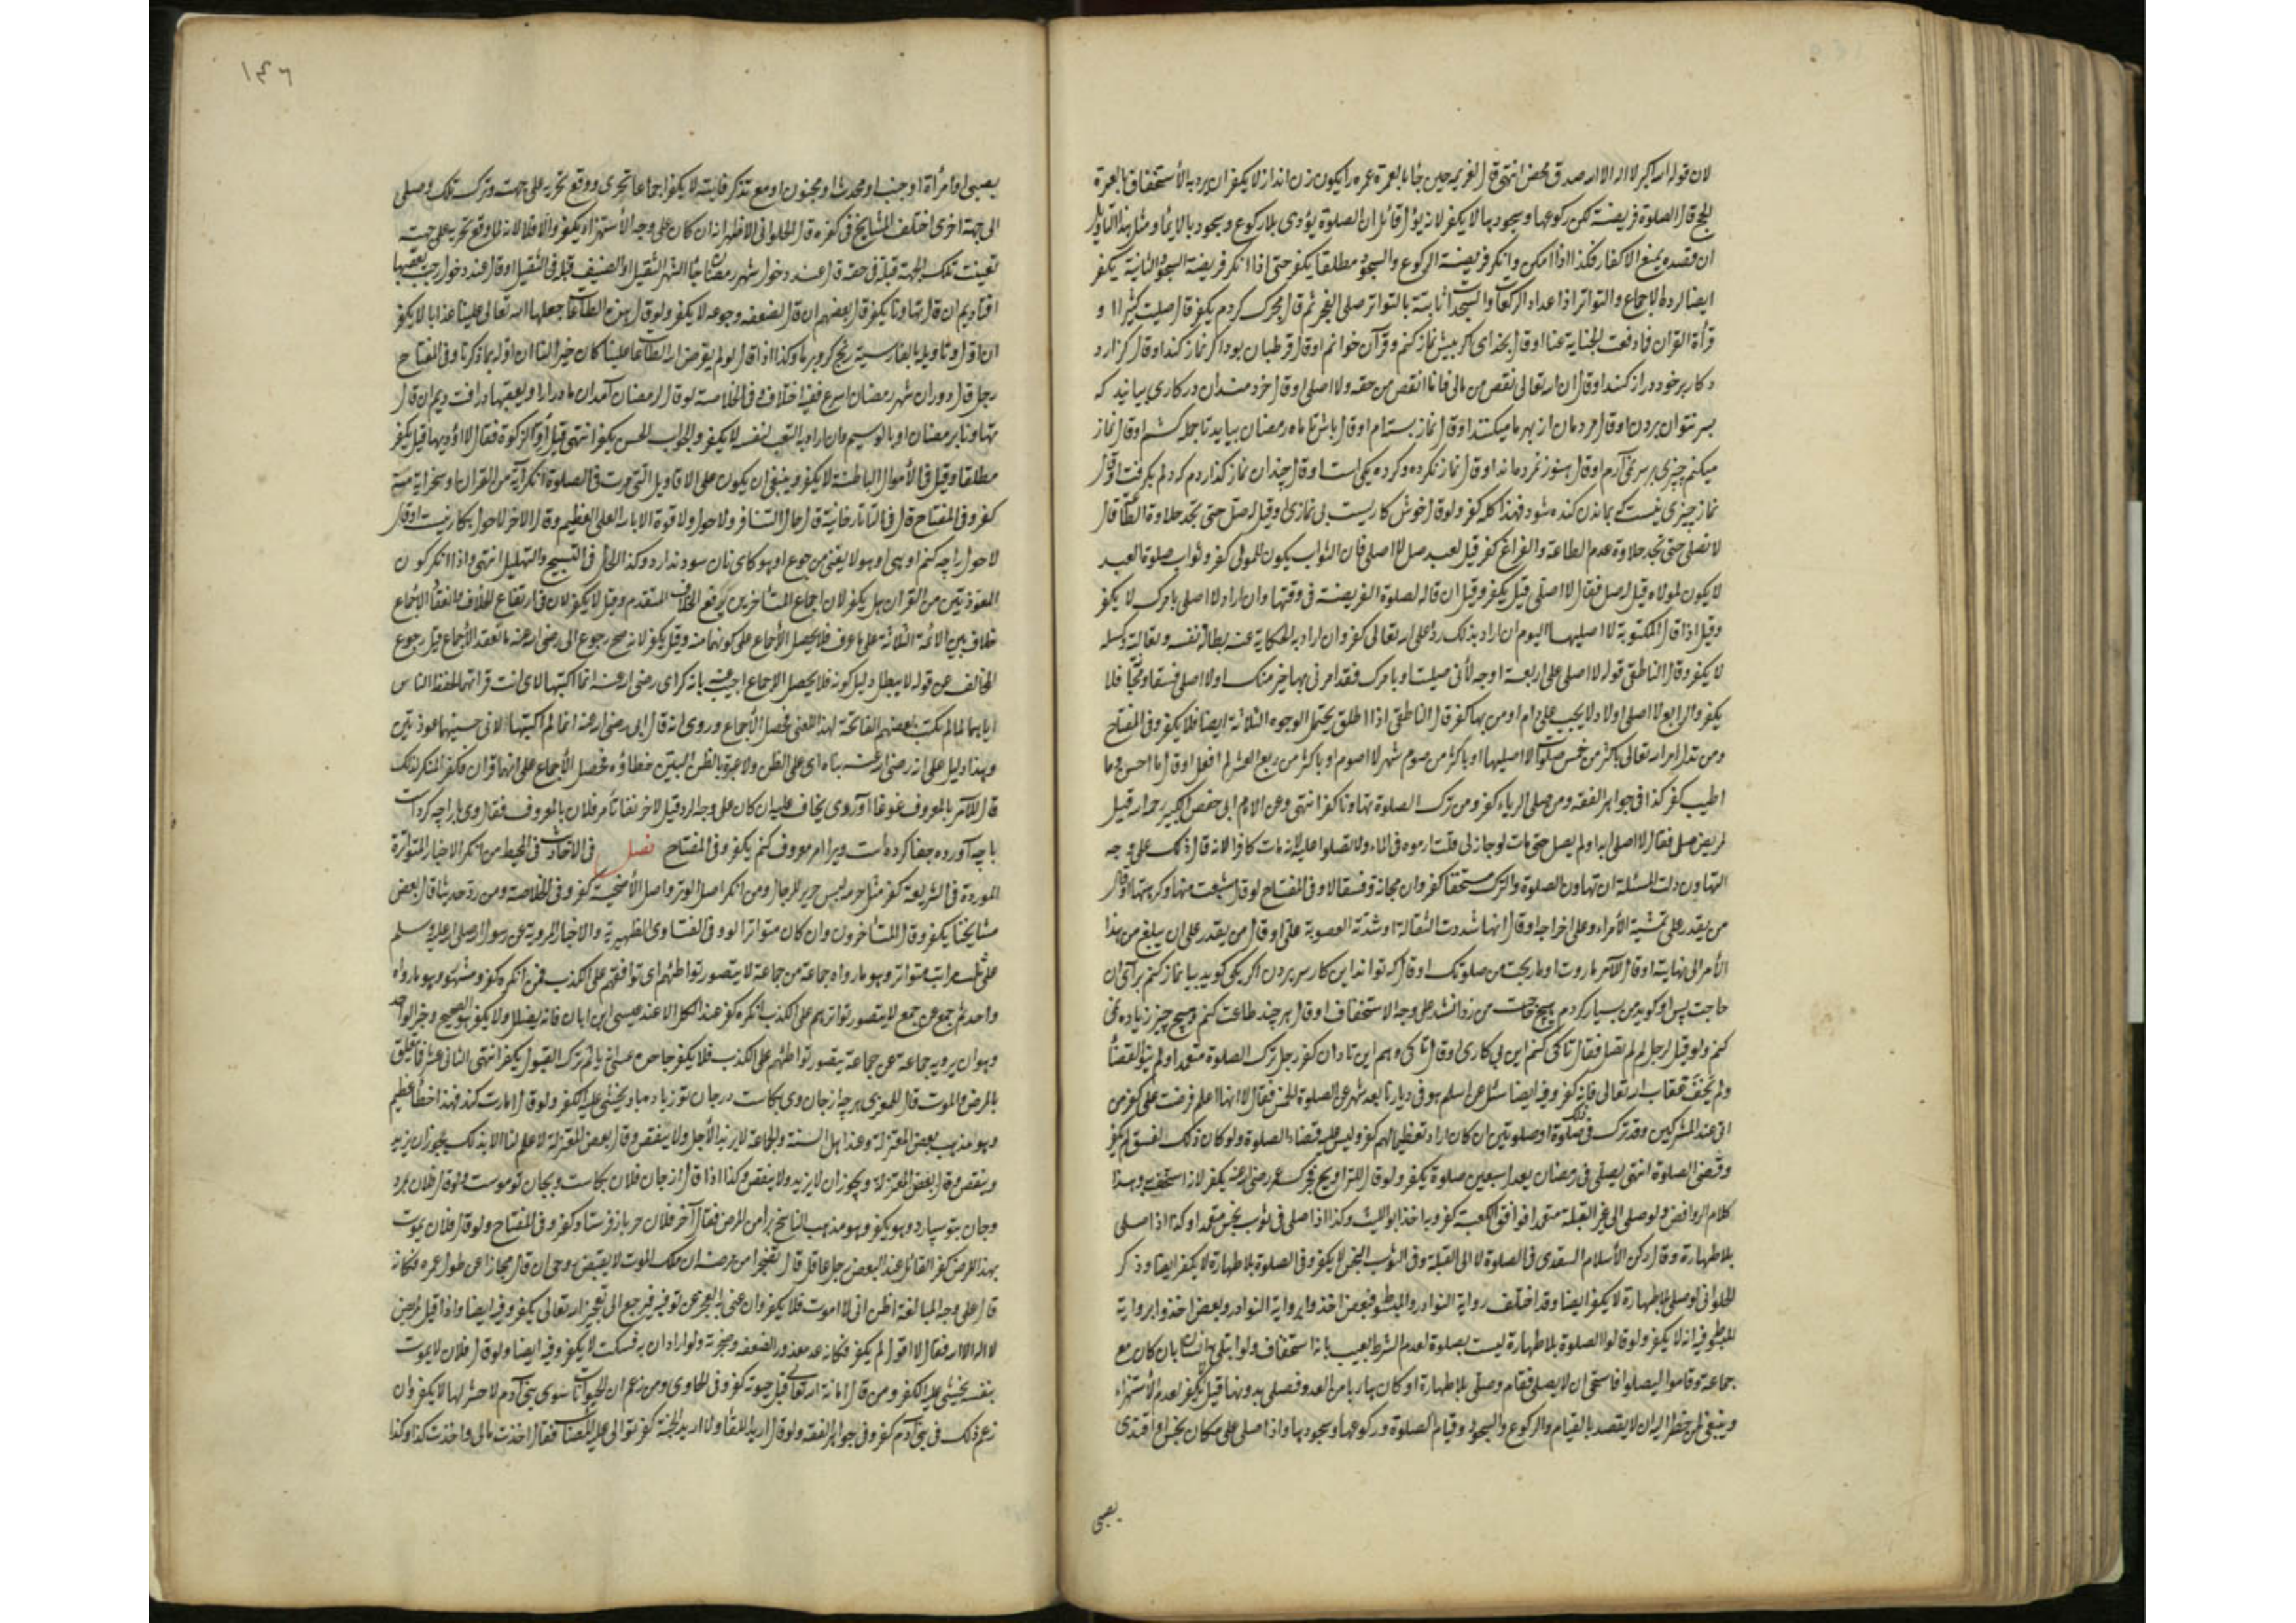 لان قوله الله اكبر لا اله الا الله صدق محض انتهى قال لغريمه حين جاء بالعمرة
الحج قال الصلوة فريضة لكن ركوعها وسجودها لا يكفر لانه يؤل قائل ان الصلوة يؤدى بلا ركوع وسجود بالايماء ومثل هذا التأويل
ان قصده يمنع الاكفار فكذا اذا امكن وانكر فريضة الركوع والسجود مطلقا يكفر حتى اذا انكر فريضة السجود الثانية يكفر
ايضا لرده الاجماع والتواتر اذ اعداد الركعات والسجدات ثابتة بالتواتر صلى الفجر ثم قال
قرأة القرآن فاوقعت الجناية عنا او قال بخداى كر بيش نماز كنم وقرآن خوانم او قال قرطبان بود اكر نماز كند او قال
كار بر خود دراز كند او قال ان الله تعالى نقص من مالى فانا انقص من حقه ولا اصلى او قال خردمندان در كارى بيايند كه
بسر نتوان بردن او قال مردمان از بهر ما ميكنند او قال نماز بسته ام او قال باش تا ماه رمضان بيايد تا جمله كنيم او قال نماز
ميكنم چيزى بر سر نمى آرم او قال او قال نماز نكرده وكرده يكى است او قال چندان نماز كذاردم كه دلم بكرفت او قال
نماز چيزى نيست كه بماندن كنده شود فهذا كله كفر ولو قال خوش كاريست بى نمازى او قيل له صل حتى تجد حلاوة الطاعة قال
لا تصلى حتى تجد حلاوة عدم الطاعة والفراغ كفر قيل لعبد صل فقال لا اصلى فان الثواب يكون للمولى كفر وثواب صلوة العبد
لا يكون لمولاه وقيل له صل فقال لا اصلى قيل يكفر وقيل ان قاله لصلوة الفريضة فى وقتها وان اراد لا اصلى بامرك لا يكفر
وقيل اذا قال المكتوبة لا اصليها اليوم ان اراد بذلك رد على الله تعالى كفر وان اراد به الحكاية عنه بطالة نفسه وكسله
لا يكفر وقال الناطفى قوله لا اصلى على اربعة اوجه لأنى صليت او بامرك فقد امرنى بها خير منك او لا اصلى فسقا ومجانة فلا
يكفر والرابع لا اصلى اولا ولا يجب على ام اومن بها كفر قال الناطفى اذا اطلق يحتمل الوجوه الثلاثة ايضا فلا يكفر وفى المفتاح
ومن قال لو امر الله تعالى باكثر من خمس صلوات لا اصليها او باكثر من صوم شهر لا اصوم او باكثر من ربع العشر لم افعل او قال ما احسن وما
اطيب كفر كذا فى جواهر الفقه ومن صلى الرياء كفر ومن ترك الصلوة تهاونا كفر انتهى وعن الامام ابى حفص الكبير رحمه الله قيل
لمريض صل فقال لا اصلى ابدا ولم يصل حتى مات لو جاز لى قلت ارموه فى الماء ولا تصلوا عليه لانه مات كافرا لانه قال ذلك على وجه
التهاون دلت المسئلة ان تهاون الصلوة والترك مستخفا كفر وان مجانة وفسقا لا وفى المفتاح لو قال شبعت منها وكرهتها او قال
من يقدر على تمشية الأمر وعلى اخراجه او قال انها شدت الثقالة او شدته الصعوبة على او قال من يقدر على ان يبلغ من هذا
الأمر الى نهايته او قال للآمر ماذا ربحت من صلوتك او قال كه تواند اين كار بسر بردن اكر يكى كويد بيا نماز كنم براى ان
حاجت پس او كويد من بسيار كردم هيچ حاجت من روا نشد على وجه الاستخفاف او قال هر چند طاعت كنم هيچ چيز زياده نمى
كنم ولو قيل لرجل لم لم تصل فقال تا كى كنم اين بى كارى او قال تا كى دهم اين تاوان كفر رجل ترك الصلوة متعمدا ولم ينو القضاء
ولم يخف عقاب الله تعالى فانه كفر وفيه ايضا سئل عمن اسلم وهو فى ديارنا بعد شهر عن الصلوة الخمس فقال لا انها اعلم فرضت على كفر من
اتى عند المشركين وقد ترك صلوة او صلوتين ان كان اراد تعظيما لهم كفر وليس عليه قضاء الصلوة ولو كان ذلك لفسق لم يكفر
وقضى الصلوة انتهى يصلى فى رمضان بعدل سبعين صلوة يكفر ولو قال للتراويح رضى الله عنه يكفر لانه استخف به وهذا
كلام الروافض ولو صلى الى غير القبلة متعمدا فوافق الكعبة كفر وبه اخذ ابو الليث وكذا اذا صلى فى ثوب نجس متعمدا وكذا اذا صلى
بلا طهارة وقال ركن الاسلام السغدى فى الصلوة لا الى القبلة وفى الثوب النجس لا يكفر وفى الصلوة بلا طهارة لا يكفر ايضا وذكر
الحلوانى لو صلى بلا طهارة لا يكفر ايضا وقد اختلف رواية النوادر والمبسوط فبعض اخذوا برواية النوادر وبعض اخذوا برواية
المبسوط وفيه انه لا يكفر ولو قالوا الصلوة بلا طهارة ليست بصلوة لعدم الشرط يجيب بانه استخفاف ولو ابتلى به انسان بان كان مع
جماعة وقاموا ليصلوا فاستحى ان لا يصلى فقام وصلى بلا طهارة او كان هاربا من العدو فصلى بدونها قيل لا يكفر لعدم الأستهزاء
وينبغى لمن اضطر اليه ان لا يقصد بالقيام والركوع والسجود وقيام الصلوة وركوعها وسجودها واذا صلى على مكان نجس او اقتدى
بصبى
١٤٦
بصبى او امرأة او جنب او محدث او مجنون او مع تذكر فائتة لا يكفر اجماعا تحرى ووقع تحريه على جهة وترك تلك وصلى
الى جهة اخرى اختلف المشايخ فى كفره قال الحلوانى الاظهر انه ان كان على وجه الأستهزاء يكفر والا فلا لانه لما وقع تحريه على جهة
تعينت تلك الجهة قبلة فى حقه قال عند دخول شهر رمضان جاء الشهر الثقيل او الضيف الثقيل او قال عند دخول رجب بعقبها
افتاديم ان قال تهاونا يكفر قال بعضهم ان قال لضعفه وجوعه لا يكفر ولو قال هذه الطاعات جعلها الله تعالى علينا عذابا لا يكفر
ان اول وتأويله بالفارسية وكذا اذا قال لو لم يفرض الله الطاعات علينا كان خيرا لنا ان اوله بما ذكرنا وفى المفتاح
رجل قال دوران شهر رمضان اسرع ففيه اختلاف وفى الخلاصة لو قال رمضان آمد ان ماه دراز او بعقبها در افتديم ان قال
تهاونا برمضان او بالموسم وان اراد به التعب لنفسه لا يكفر والجواب الحسن يكفر انتهى قيل أد الزكوة فقال لا اؤديها قيل يكفر
مطلقا وقيل فى الأموال الباطنة لا يكفر وينبغى ان يكون على الاقاويل التى مرت فى الصلوة انكر آية من القرآن او سخر بآية منه
كفر وفى المفتاح قال فى التاتارخانية قال حال التنافر ولا حول ولا قوة الا بالله العلى العظيم وقال الاخر لا حول بكار نيست او قال
لا حول را چه كنم او لا يغنى من جوع او نان سود ندارد وكذا الحال فى التسبيح والتهليل انتهى واذا انكر كون
المعوذتين من القرآن هل يكفر لان اجماع المتأخرين يرفع الخلاف المتقدم وقيل لا يكفر لان فى ارتفاع الخلاف وانعقاد الأجماع
خلاف بين الائمة الثلاثة على ما عرف فلا يحصل الأجماع على كونهما منه وقيل يكفر لانه صح رجوع ابى رضى الله عنه ما انعقد الأجماع قبل رجوع
المخالف عن قوله لا يبطل دليل كونه فلا يحصل الاجماع اجيب رضى الله عنه انما اكتبتها قراتهما لحفظ الناس
اياهما كما لم يكتب بعضهم الفاتحة لهذا المعنى فحصل الأجماع وروى انه قال ابى رضى الله عنه انما لم اكتبها لانى حسبتهما عوذتين
وهذا دليل على انه رضى الله عنه بناه اى على الظن ولا عبرة بالظن البين خطاؤه فحصل الأجماع على انهما قرآن فكفر المنكر لذلك
قال للآمر بالمعروف غوغا آوردى يخاف عليه ان كان على وجه الرد قيل لاخر تأمر فلان بالمعروف فقال وى ما را چه كرده است
يا چه آورده جفا كرده است وى را امر معروف كنم يكفر وفى المفتاح فصل فى الاحاديث فى المحيط من انكر الاخبار المتواترة
الموردة فى الشريعة كفر مثل حرمة لبس حرير للرجال ومن انكر اصل الوتر واصل الأضحية كفر وفى الخلاصة ومن رد حديثا قال بعض
مشايخنا يكفر وقال المتأخرون وان كان متواترا وفى الفتاوى الظهيرية والاخبار المروية عن رسول الله صلى الله عليه وسلم
على ثلث مراتب متواتر وهو ما رواه جماعة من جماعة لا يتصور تواطئهم اى توافقهم على الكذب فمن انكره كفر ومشهور وهو ما رواه
واحد ثم جمع عن جمع لا يتصور توافقهم على الكذب انكره كفر عند الكل الا عند عيسى ابن ابان فانه يضلل ولا يكفر هو الصحيح وخبر الواحد
وهو ان يرويه جماعة عن جماعة يتصور تواطئهم على الكذب فلا يكفر جاحده يأثم ترك القبول يكفر انتهى الثانى عشر فيما يتعلق
بالمرض والموت قال للمعزى هر چه از جان وى بكاست در جان تو زياده باد يخشى عليه الكفر ولو قال فهذا خطأ عظيم
وهو مذهب بعض المعتزلة وعند اهل السنة والجماعة لا يزيد الأجل ولا ينقص وقال بعض المعتزلة لا علم لنا الا بذلك يجوز ان يزيد
وينقص وقال بعض المعتزلة ويجوز ان لا يزيد ولا ينقص وكذا اذا قال از جان فلان بكاست وبجان تو پيوست ولو قال فلان مرد
وجان بتو سپارد وهو يكفر وهو مذهب التناسخ برأ من المرض فقال آخر فلان خر باز فرستاد كفر وفى المفتاح ولو قال فلان يموت
بهذا المرض كفر القائل عند البعض رجل عاقل قال من مرضه ان ملك الموت لا يقبض روحى ان قال مجازا عن طول عمره فكانه
قال على وجه المبالغة اظن انى لا اموت فلا يكفر وان عنى به العجز عن توفيه يرجع الى تعجيز الله تعالى يكفر وفيه ايضا واذا قيل لمريض
لا اله الا الله فقال لا اقول لم يكفر فكانه عد معذورا لضعفه وضجرته ولو اراد ان به فسكت لا يكفر وفيه ايضا ولو قال فلان لا يموت
بنفسه يخشى عليه الكفر ومن قال اماته الله تعالى قبل حيوته كفر وفى الحاوى ومن زعم ان الحيوانات سوى بنى آدم لا حشر لها لا يكفر وان
زعم ذلك فى بنى آدم كفر وفى جواهر الفقه ولو قال اريد اللقاء ولا اريد الجنة كفر توالى عليه المصائب فقال اخذت مالى واخذت كذا وكذا